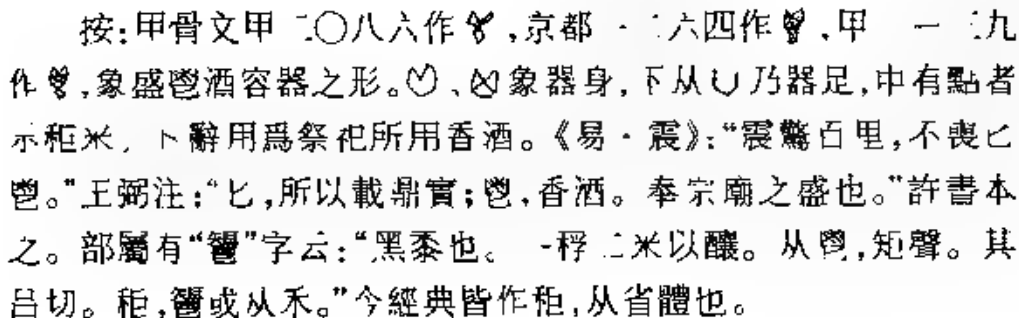 按:甲骨文甲二〇八六作,京都一二六四作,甲一一三九
作,象盛鬯酒容器之形。、象器身,下从凵乃器足,中有點者
示秬米,卜辭用爲祭祀所用香酒。《易·震》:“震驚百里,不喪匕
鬯。”王弼注:“匕,所以載鼎實;鬯,香酒。奉宗廟之盛也。”許書本
之。部屬有“𩰤”字云:“黑黍也。一稃二米以釀。从鬯,矩聲。其
吕切。秬,𩰤或从禾。”今經典皆作秬,从省體也。